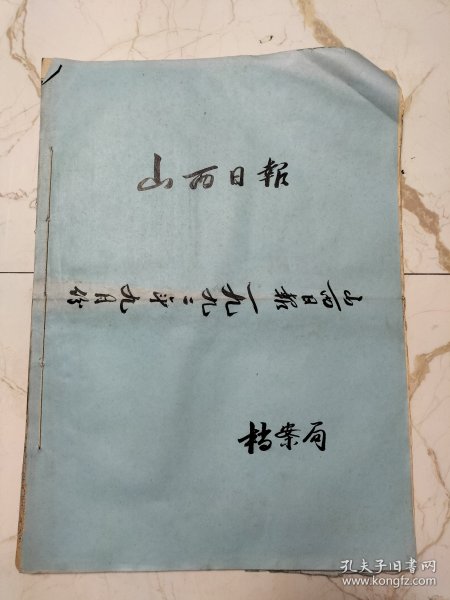 山西日報
山西日报 一九九二年九月份
档案局
孔夫子旧书网
www.kongfz.com